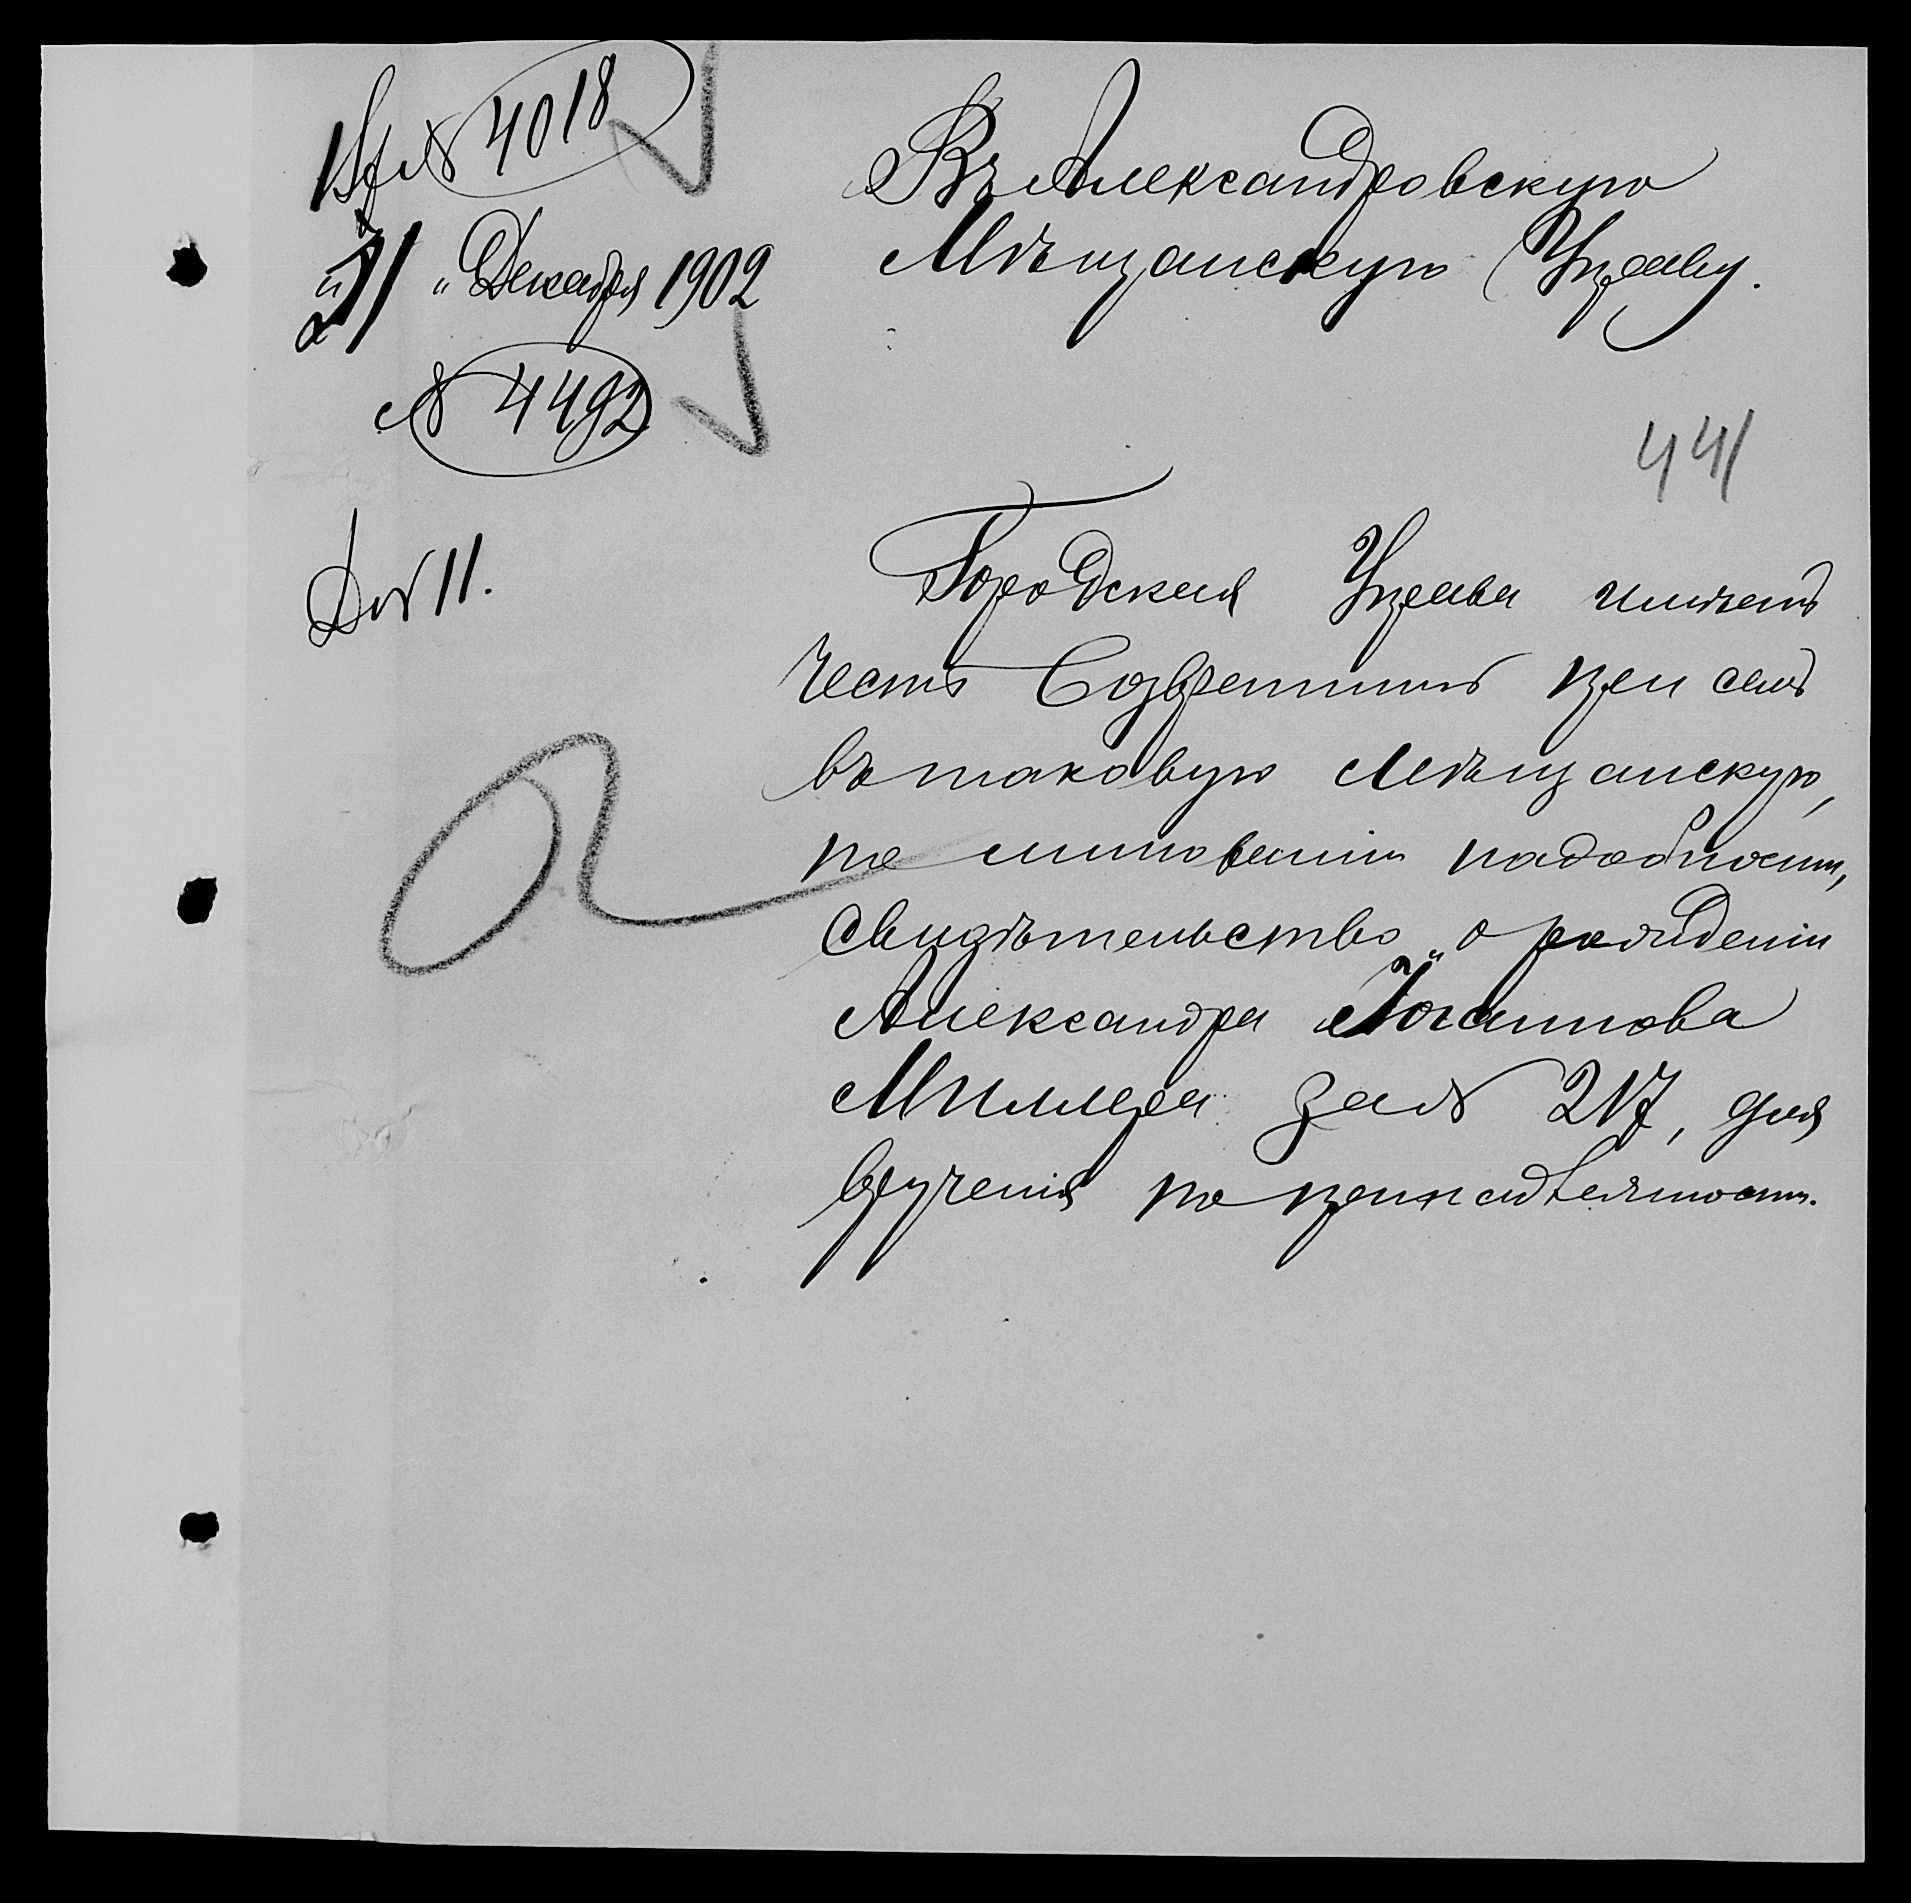 № 4018
Въ Александровскую
Мѣщанскую Управу.
" Декабря 1902
№ 4492
441
Городская Управа имѣетъ
честь Возвратить при семъ
въ таковую Мѣщанскую,
по миновеніи надобности,
свидѣтельство о рожденіи
Александра Іоганнова
Миллера за № 217, для
врученія по принадлежности.